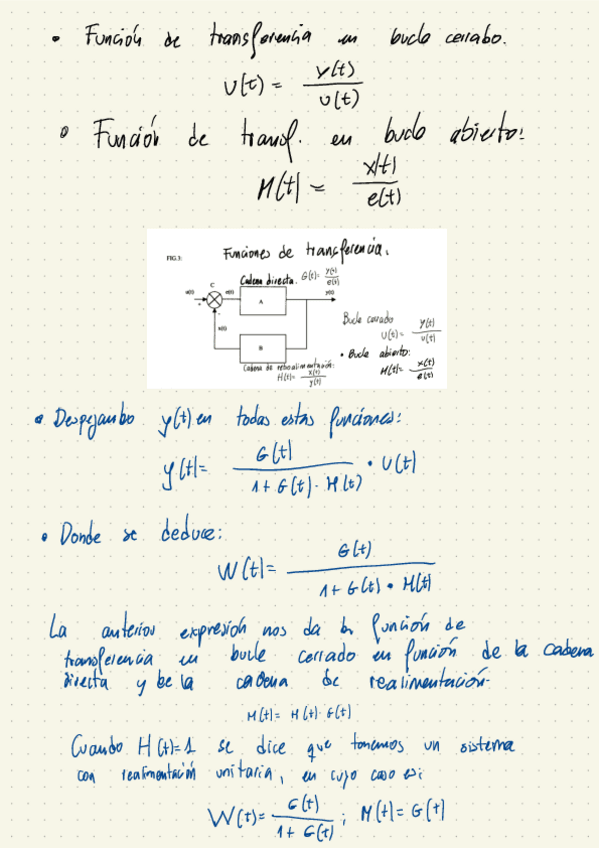 • Función de transferencia en bucle cerrabo.
U(t) = y(t) / u(t)
• Función de transf. en bucle abierto:
M(t) = x(t) / e(t)
FIG.3:
Funciones de transferencia.
Cadena directa. G(t) = y(t) / e(t)
C
u(t)
e(t)
A
y(t)
+
x(t)
B
Bucle cerrado
U(t) = y(t) / u(t)
• Bucle abierto:
M(t) = x(t) / e(t)
Cadena de retroalimentación:
H(t) = x(t) / y(t)
• Despejambo y(t) en todas estas funciones:
y(t) = G(t) / 1 + G(t) · H(t) • U(t)
• Donde se deduce:
W(t) = G(t) / 1 + G(t) • H(t)
La anterior expresión nos da la función de
transferencia en bucle cerrado en función de la cadena
directa y be la cadena de realimentación.
M(t) = H(t) · G(t)
Cuando H(t) = 1 se dice que tenemos un sistema
con realimentación unitaria, en cuyo caso es:
W(t) = G(t) / 1 + G(t) ; M(t) = G(t)